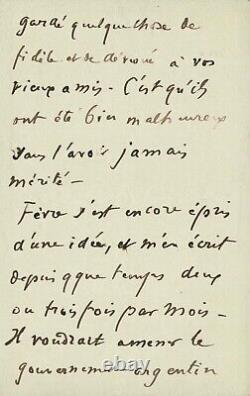 gardé quelque chose de
fidèle et de dévoué à vos
vieux amis - C'est qu'ils
ont été bien malheureux
sans l'avoir jamais
mérité -
Fèvre s'est encore épris
d'une idée, et m'en écrit
depuis qque temps deux
ou trois fois par mois -
Il voudrait amener le
gouvernement argentin
ebay